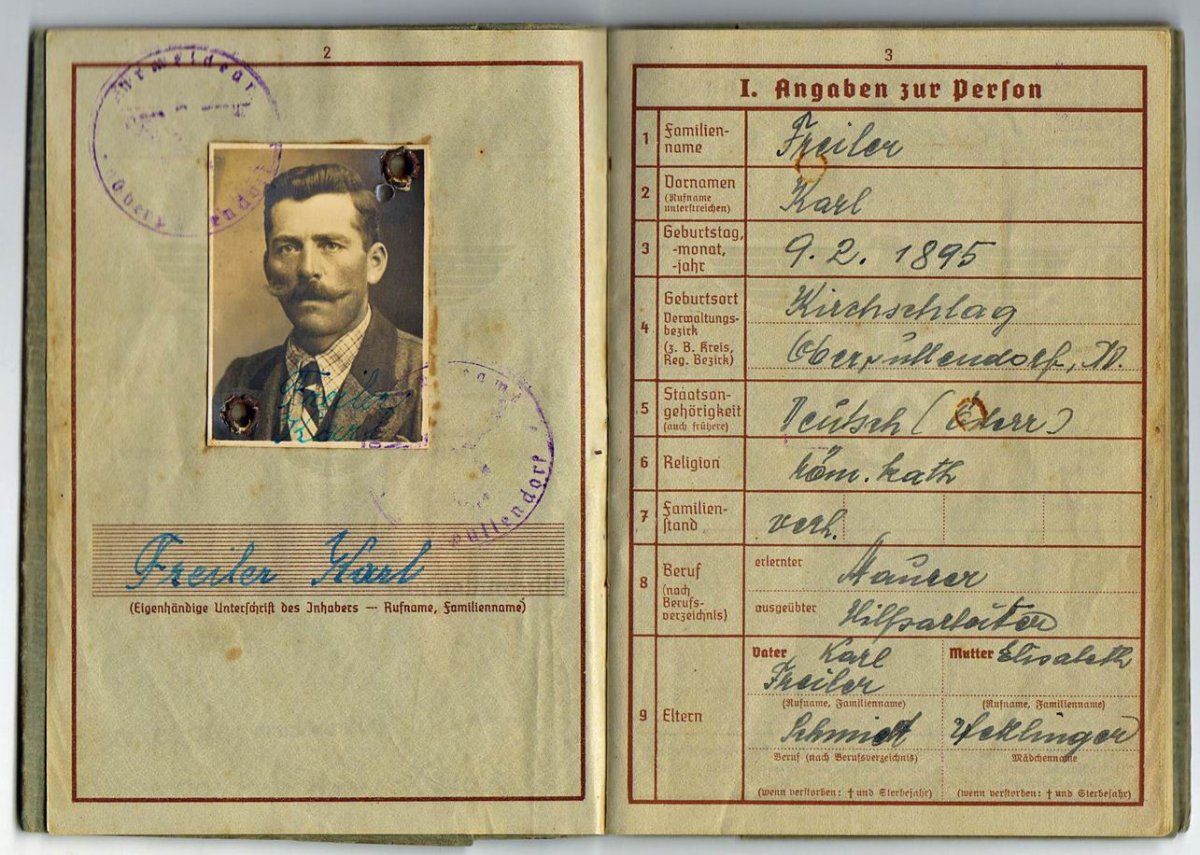 2
Freiler
Karl
Freiler Karl
(Eigenhändige Unterschrift des Inhabers — Rufname, Familienname)
3
I. Angaben zur Person
1 Familien-
name
Freiler
2 Vornamen
(Rufname
unterstreichen)
Karl
3 Geburtstag,
-monat,
-jahr
9. 2. 1895
4 Geburtsort
Verwaltungs-
bezirk
(z. B. Kreis,
Reg. Bezirk)
Kirchschlag
Oberpullendorf,
5 Staatsan-
gehörigkeit
(auch frühere)
Deutsch (
6 Religion
röm. kath
7 Familien-
stand
verh.
8 Beruf
(nach
Berufs-
verzeichnis)
erlernter
Maurer
ausgeübter
Hilfsarbeiter
9 Eltern
Vater Karl
Freiler
(Rufname, Familienname)
Schmied
Beruf (nach Berufsverzeichnis)
(wenn verstorben: † und Sterbejahr)
Mutter Elisabeth
(Rufname, Familienname)
Mädchenname
(wenn verstorben: † und Sterbejahr)